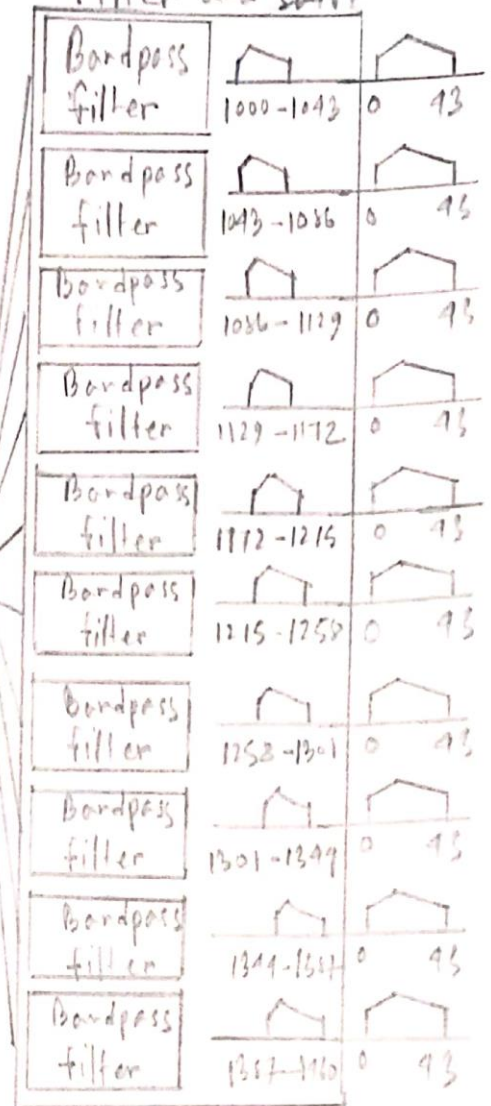 Bandpass
filter
1000-1043 0 43
Bandpass
filter
1043-1086 0 43
Bandpass
filter
1086-1129 0 43
Bandpass
filter
1129-1172 0 43
Bandpass
filter
1172-1215 0 43
Bandpass
filter
1215-1258 0 43
Bandpass
filter
1258-1301 0 43
Bandpass
filter
1301-1344 0 43
Bandpass
filter
1344-1387 0 43
Bandpass
filter
0 43